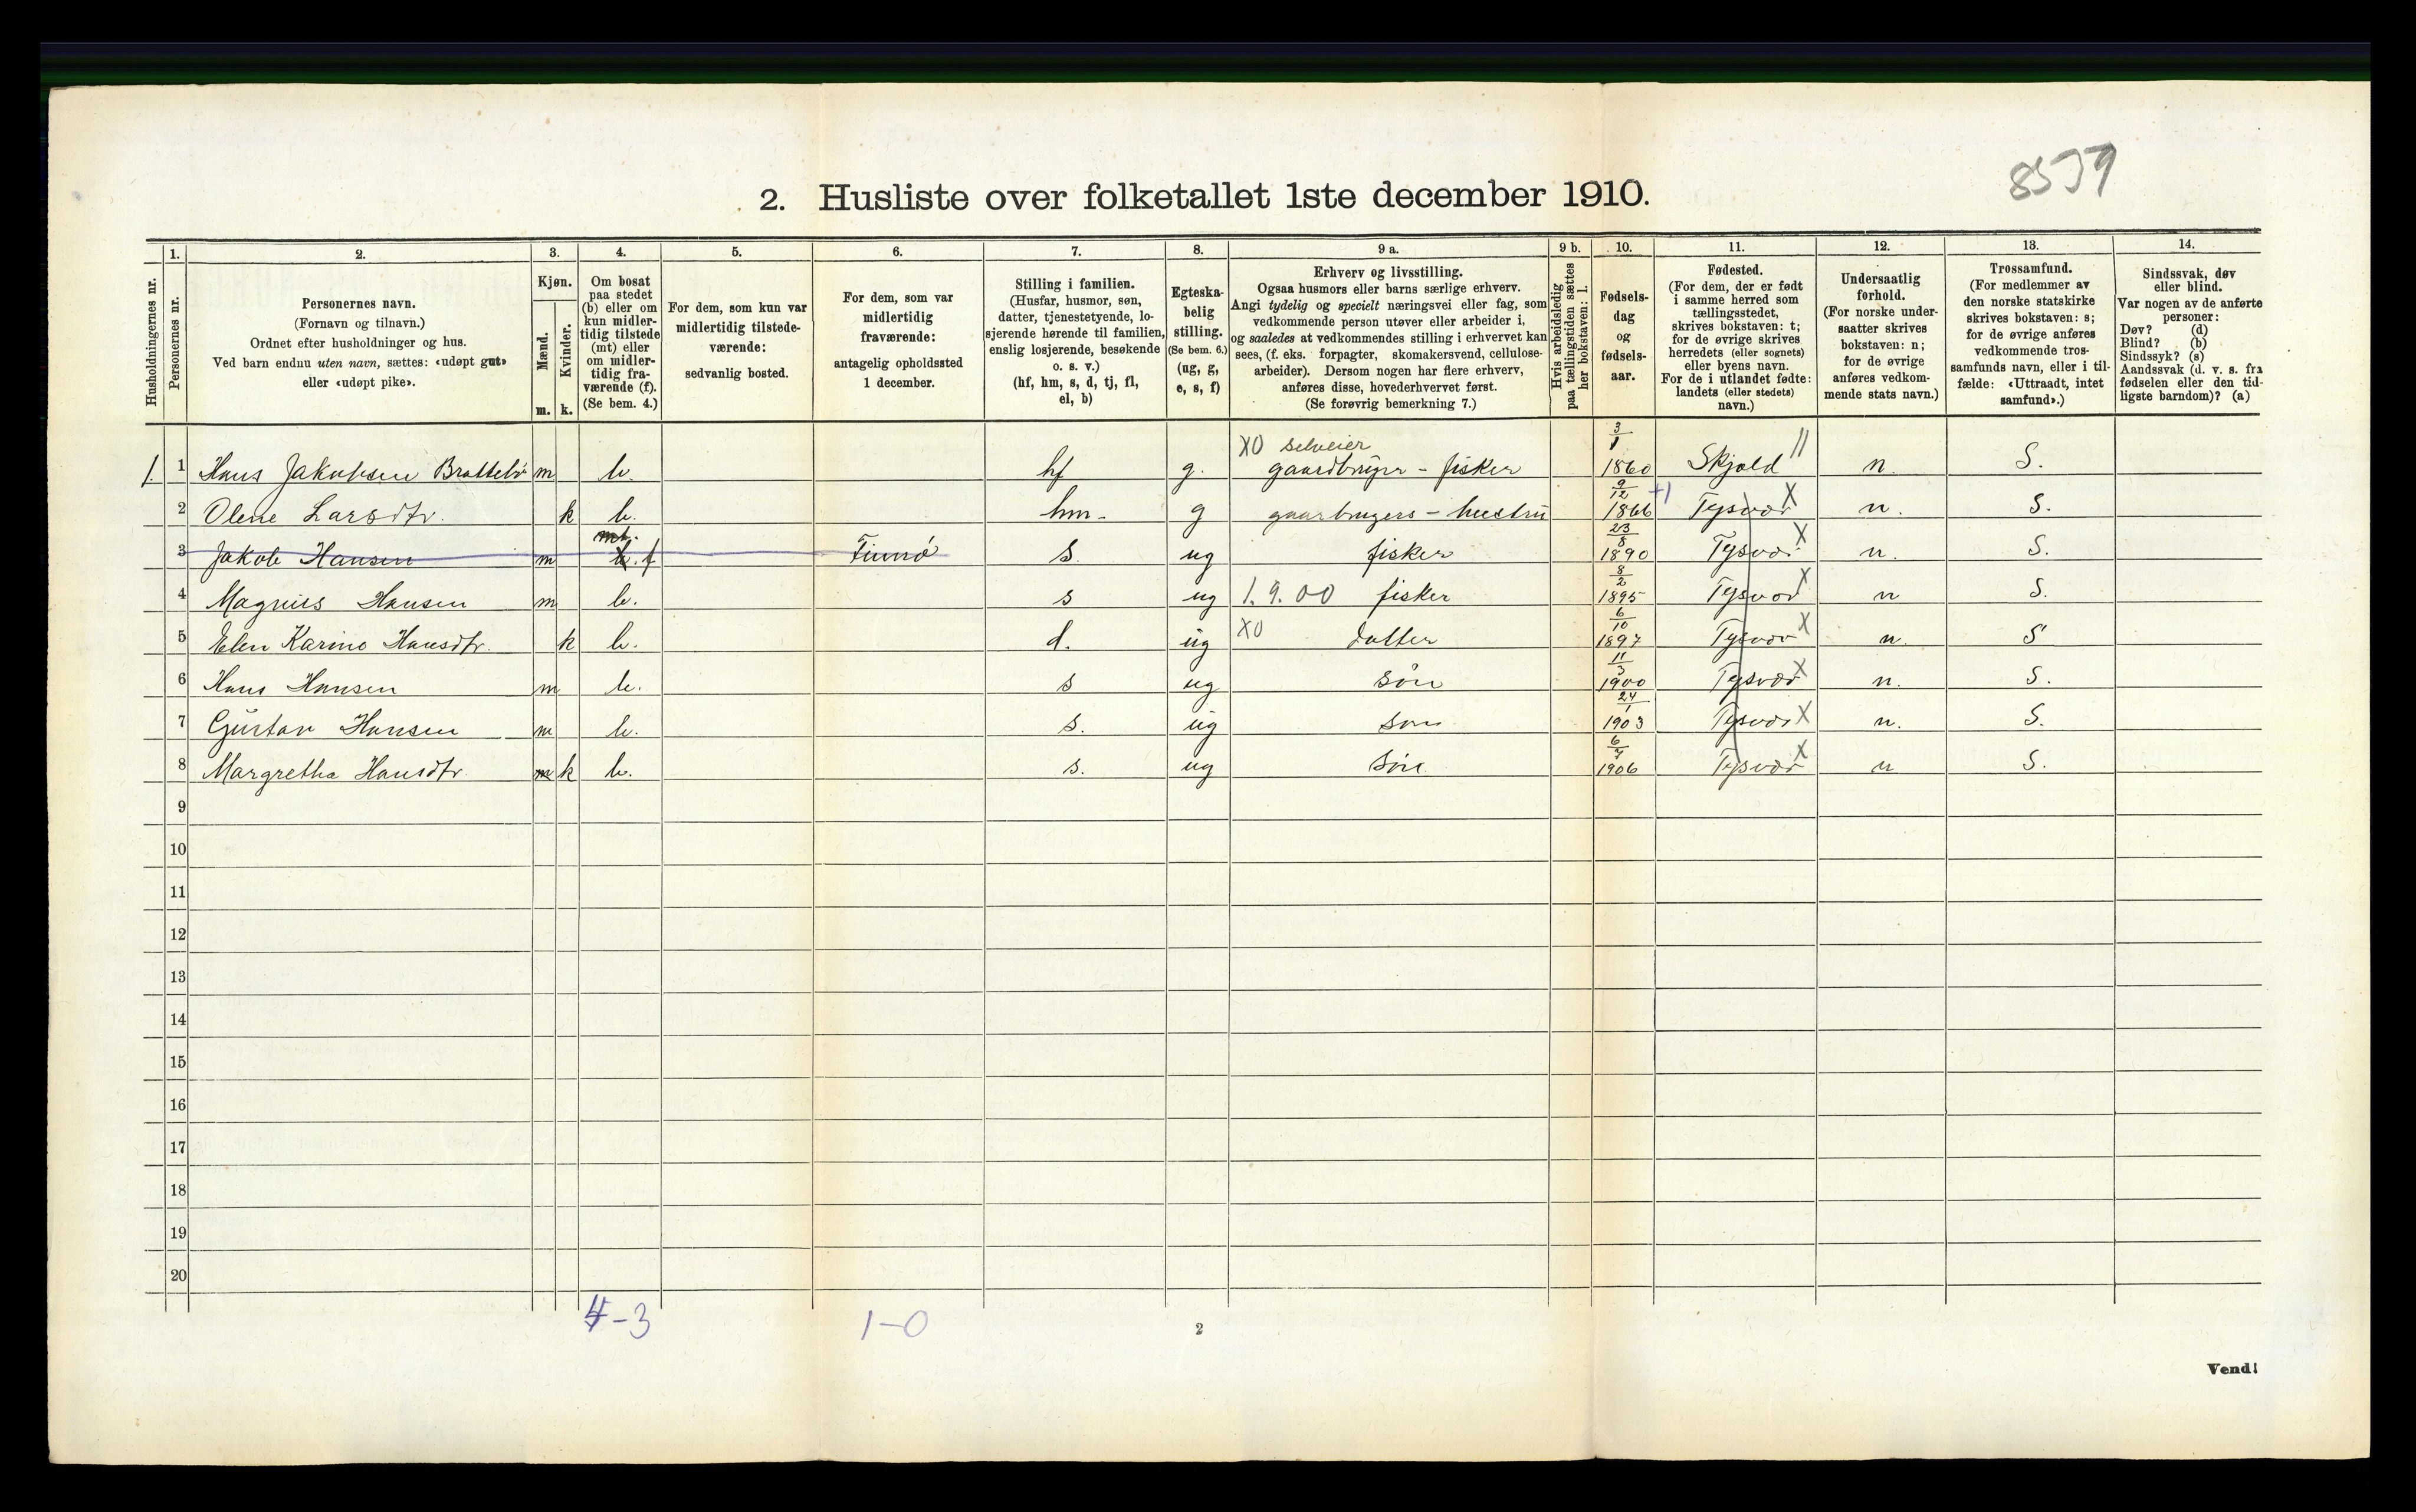 8539
2. Husliste over folketallet 1ste december 1910.
1. 2. 3. 4. 5. 6. 7. 8. 9 a. 9 b. 10. 11. 12. 13. 14.
Husholdningernes nr.
Personernes nr.
Personernes navn.
(Fornavn og tilnavn.)
Ordnet efter husholdninger og hus.
Ved barn endnu uten navn, sættes: «udøpt gut»
eller «udøpt pike».
Kjøn.
Mænd.
Kvinder.
m. k.
Om bosat
paa stedet
(b) eller om
kun midler-
tidig tilstede
(mt) eller
om midler-
tidig fra-
værende (f).
(Se bem. 4.)
For dem, som kun var
midlertidig tilstede-
værende:
sedvanlig bosted.
For dem, som var
midlertidig
fraværende:
antagelig opholdssted
1 december.
Stilling i familien.
(Husfar, husmor, søn,
datter, tjenestetyende, lo-
sjerende hørende til familien,
enslig losjerende, besøkende
o. s. v.)
(hf, hm, s, d, tj, fl,
el, b)
Egteska-
belig
stilling.
(Se bem. 6.)
(ug, g,
e, s, f)
Erhverv og livsstilling.
Ogsaa husmors eller barns særlige erhverv.
Angi tydelig og specielt næringsvei eller fag, som
vedkommende person utøver eller arbeider i,
og saaledes at vedkommendes stilling i erhvervet kan
sees, (f. eks. forpagter, skomakersvend, cellulose-
arbeider). Dersom nogen har flere erhverv,
anføres disse, hovederhvervet først.
(Se forøvrig bemerkning 7.)
Hvis arbeidsledig
paa tællingstiden sættes
her bokstaven: l.
Fødsels-
dag
og
fødsels-
aar.
Fødested.
(For dem, der er født
i samme herred som
tællingsstedet,
skrives bokstaven: t;
for de øvrige skrives
herredets (eller sognets)
eller byens navn.
For de i utlandet fødte:
landets (eller stedets)
navn.)
Undersaatlig
forhold.
(For norske under-
saatter skrives
bokstaven: n;
for de øvrige
anføres vedkom-
mende stats navn.)
Trossamfund.
(For medlemmer av
den norske statskirke
skrives bokstaven: s;
for de øvrige anføres
vedkommende tros-
samfunds navn, eller i til-
fælde: «Uttraadt, intet
samfund».)
Sindssvak, døv
eller blind.
Var nogen av de anførte
personer:
Døv? (d)
Blind? (b)
Sindssyk? (s)
Aandssvak (d. v. s. fra
fødselen eller den tid-
ligste barndom)? (a)
XO selveier 3/1
1. 1 Hans Jakobsen Brattebø m b. hf g. gaardbruger - fisker 1860 Skjold || n. S.
9/12 +1
2 Olene Larsdtr. k b. hm - g gaarbrugers - hustru 1866 Tysvær X n. S.
mt. 23/8
3 Jakob Hansen m b. f Finnö s. ug fisker 1890 Tysvær X n. S.
8/2
4 Magnus Hansen m b. s ug 1.9.00 fisker 1895 Tysvær X n S.
6/10
5 Elen Karine Hansdtr. k b. d. ug XO datter 1897 Tysvær X n. S
11/3
6 Hans Hansen m b. s ug Sön 1900 Tysvær X n. S.
24/1
7 Gustav Hansen m b. s. ug Son 1903 Tysvær X n. S.
6/7
8 Margretha Hansdtr. m k b. s. ug Sön 1906 Tysvær X n S.
9
10
11
12
13
14
15
16
17
18
19
20
4-3 1-0
2
Vend!